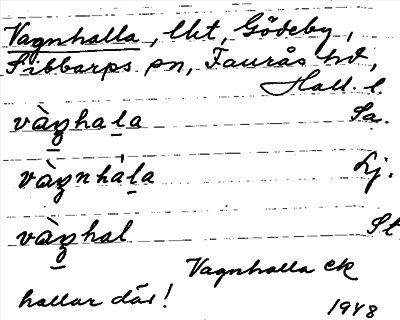 Vagnhalla, lkt, Gödeby,
Sibbarps sn, Faurås hd,
Hall. l.
vàŋhala Sa.
vàŋnhála Lj.
vàŋhal St
Vagnhalla ek
hallar där!
1948